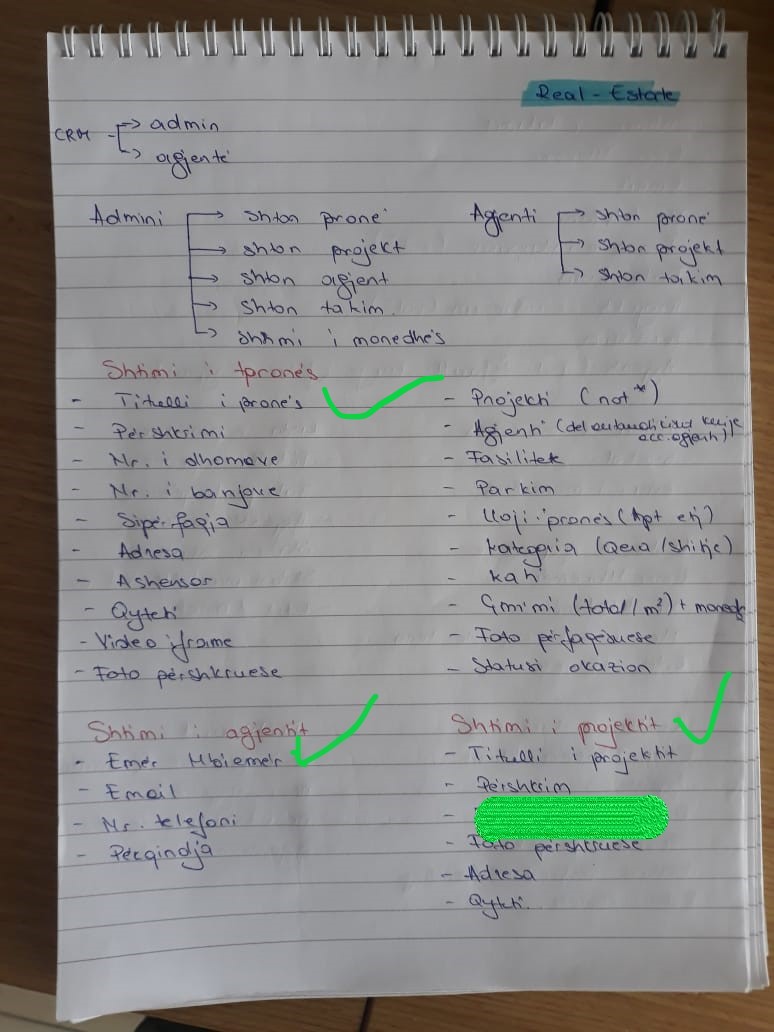 Real - Estate
CRM
admin
agjentë
Admini
Shton pronë
Shton projekt
Shton agjent
Shton takim
Shtimi i monedhës
Agjenti
Shton pronë
Shton projekt
Shton takim
Shtimi i pronës
- Titulli i pronës
- Përshkrimi
- Nr. i dhomave
- Nr. i banjove
- Sipërfaqja
- Adresa
- Ashensor
- Qyteti
- Video iframe
- Foto përshkruese
- Projekti (not *)
- Agjenti (del automatikisht
acc. agjenti)
- Fasilitet
- Parkim
- Lloji i pronës (Apt etj)
- Kategoria (Qera / Shitje)
- Kati
- Çmimi (total / m²) + monedh
- Foto përfaqësuese
- Statusi okazion
Shtimi i agjentit
- Emër Mbiemër
- Email
- Nr. telefoni
- Përqindja
Shtimi i projektit
- Titulli i projektit
- Përshkrim
-
- Foto përshkruese
- Adresa
- Qyteti